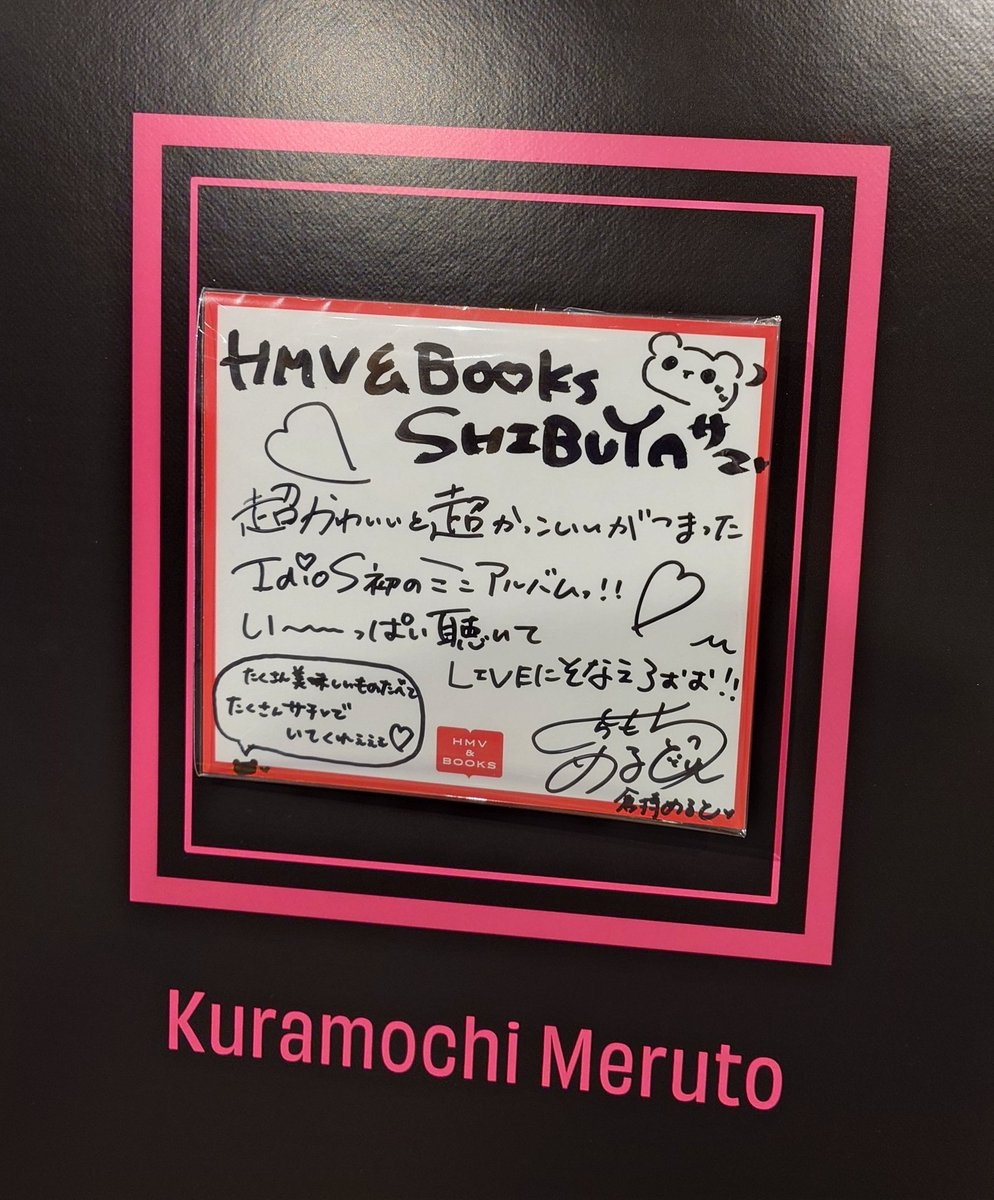 HMV&Books
SHIBUYAサン
超かわいいと超かっこいいがつまった
IdioS初のミニアルバムっ!!
い〜〜っぱい聴いて
LIVEにそなえろぉぉ!!
たくさん美味しいものたべて
たくさんサチレで
いてくれぇぇぇ
HMV
&
BOOKS
めると
倉持めると
Kuramochi Meruto